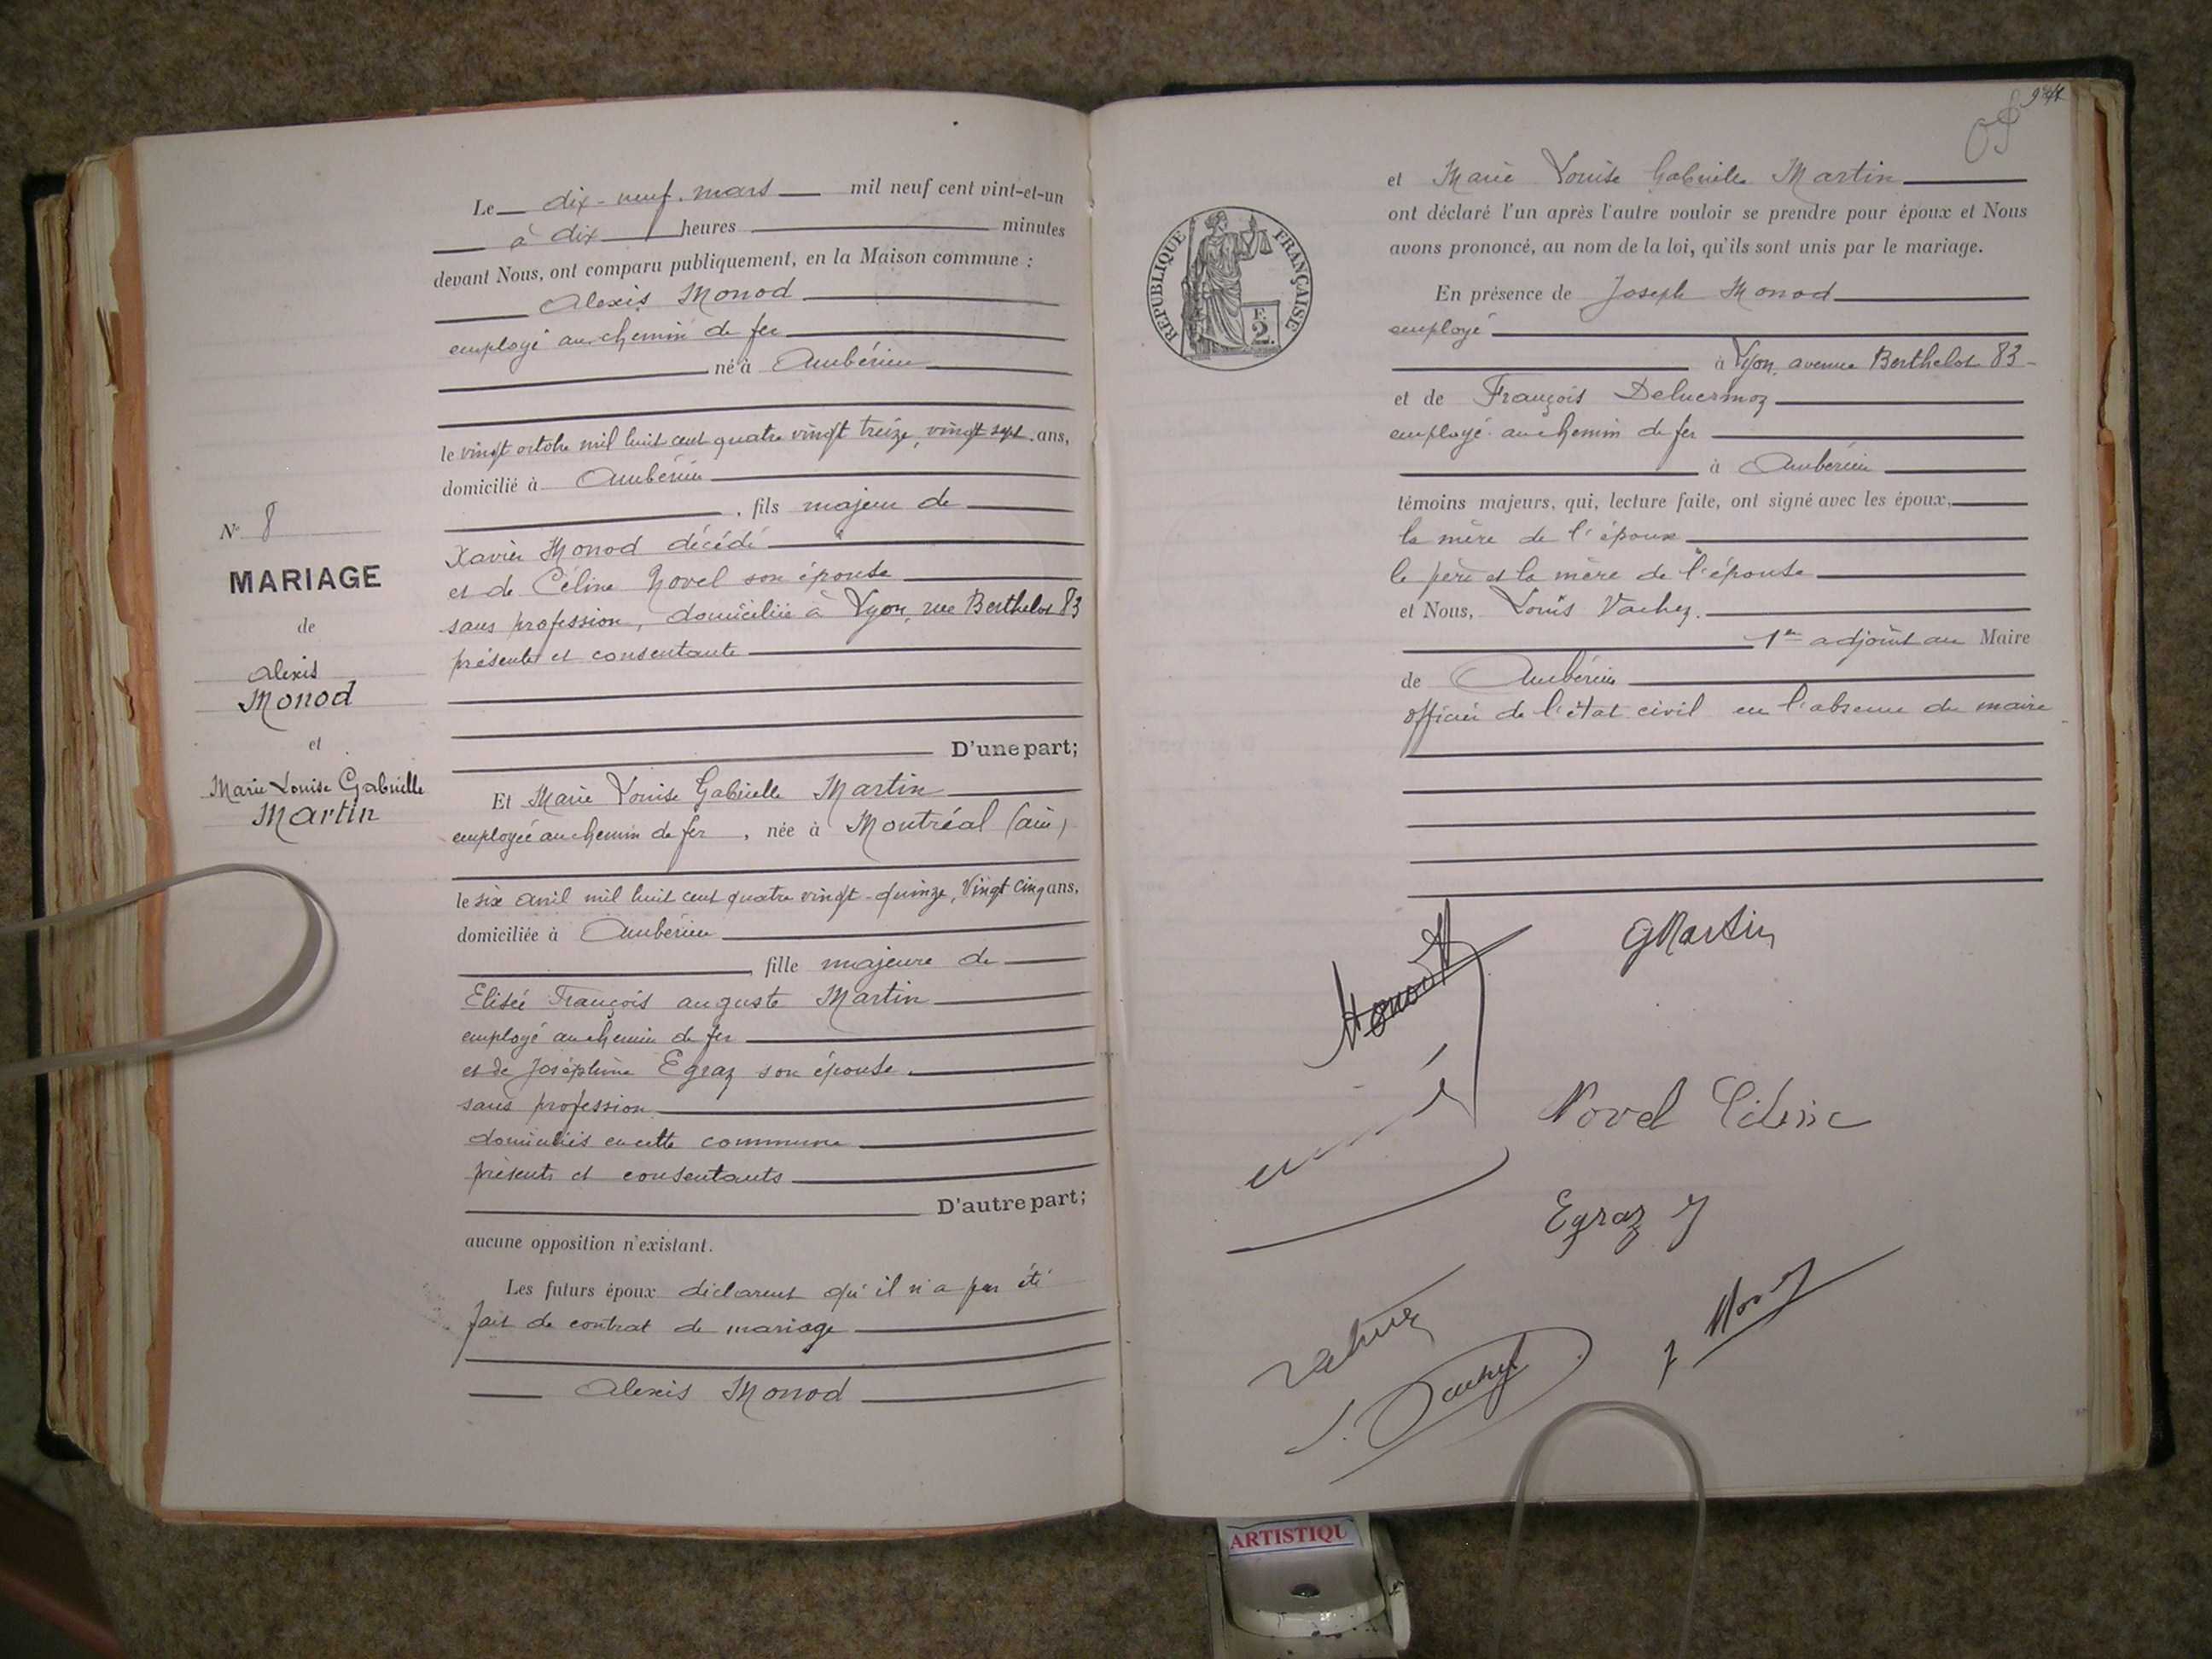 Le dix-neuf mars mil neuf cent vint-et-un
à dix heures minutes
devant Nous, ont comparu publiquement, en la Maison commune :
Alexis Monod
employé au chemin de fer
né à Ambérieu
le vingt octobre mil huit cent quatre vingt treize, vingt sept ans,
domicilié à Ambérieu
, fils majeur de
Xavier Monod décédé
et de Céline Novel son épouse
sans profession, domiciliée à Lyon, rue Berthelot 83
présente et consentante
D'une part;
N° 8
MARIAGE
de
Alexis
Monod
et
Marie Louise Gabrielle
Martin
Et Marie Louise Gabrielle Martin
employée au chemin de fer, née à Montréal (ain)
le six avril mil huit cent quatre vingt-quinze, vingt cinq ans,
domiciliée à Ambérieu
, fille majeure de
Elisée François auguste Martin
employé au chemin de fer
et de Joséphine Egraz son épouse
sans profession
domiciliés en cette commune
présents et consentants
D'autre part;
aucune opposition n'existant.
Les futurs époux déclarent qu'il n'a pas été
fait de contrat de mariage
Alexis Monod
et Marie Louise Gabrielle Martin
ont déclaré l'un après l'autre vouloir se prendre pour époux et Nous
avons prononcé, au nom de la loi, qu'ils sont unis par le mariage.
RÉPUBLIQUE FRANÇAISE
F.
2.
En présence de Joseph Monod
employé
à Lyon, avenue Berthelot 83
et de François Deluermoz
employé au chemin de fer
à Ambérieu
témoins majeurs, qui, lecture faite, ont signé avec les époux,
la mère de l'époux
le père et la mère de l'épouse
et Nous, Louis Vachez.
1er adjoint au Maire
de Ambérieu
officier de l'état civil en l'absence du maire
Monod
GMartin
Novel Céline
Egraz J
J. Vachez
ARTISTIQU